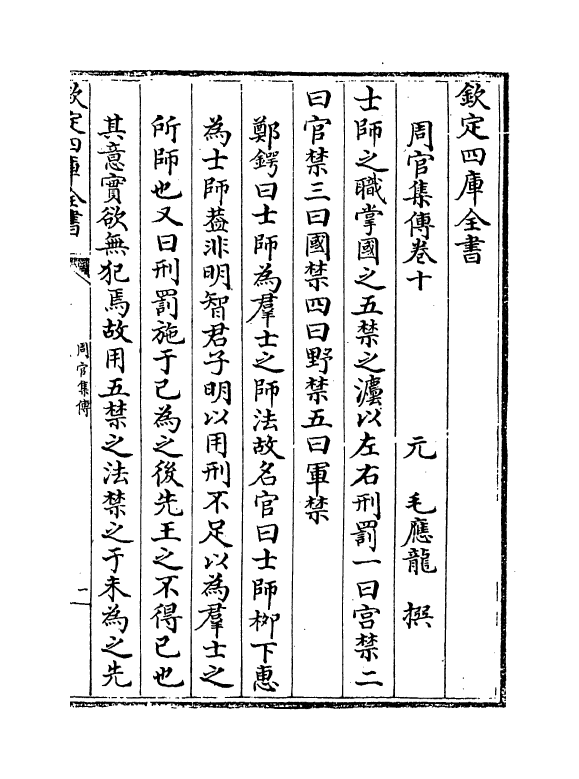 欽定四庫全書
周官集傳卷十
元 毛應龍 撰
士師之職掌國之五禁之灋以左右刑罰一曰宫禁二
曰官禁三曰國禁四曰野禁五曰軍禁
鄭鍔曰士師為羣士之師法故名官曰士師柳下惠
為士師葢非明智君子明以用刑不足以為羣士之
所師也又曰刑罰施于已為之後先王之不得已也
其意實欲無犯焉故用五禁之法禁之于未為之先
欽定四庫全書
周官集傳
一